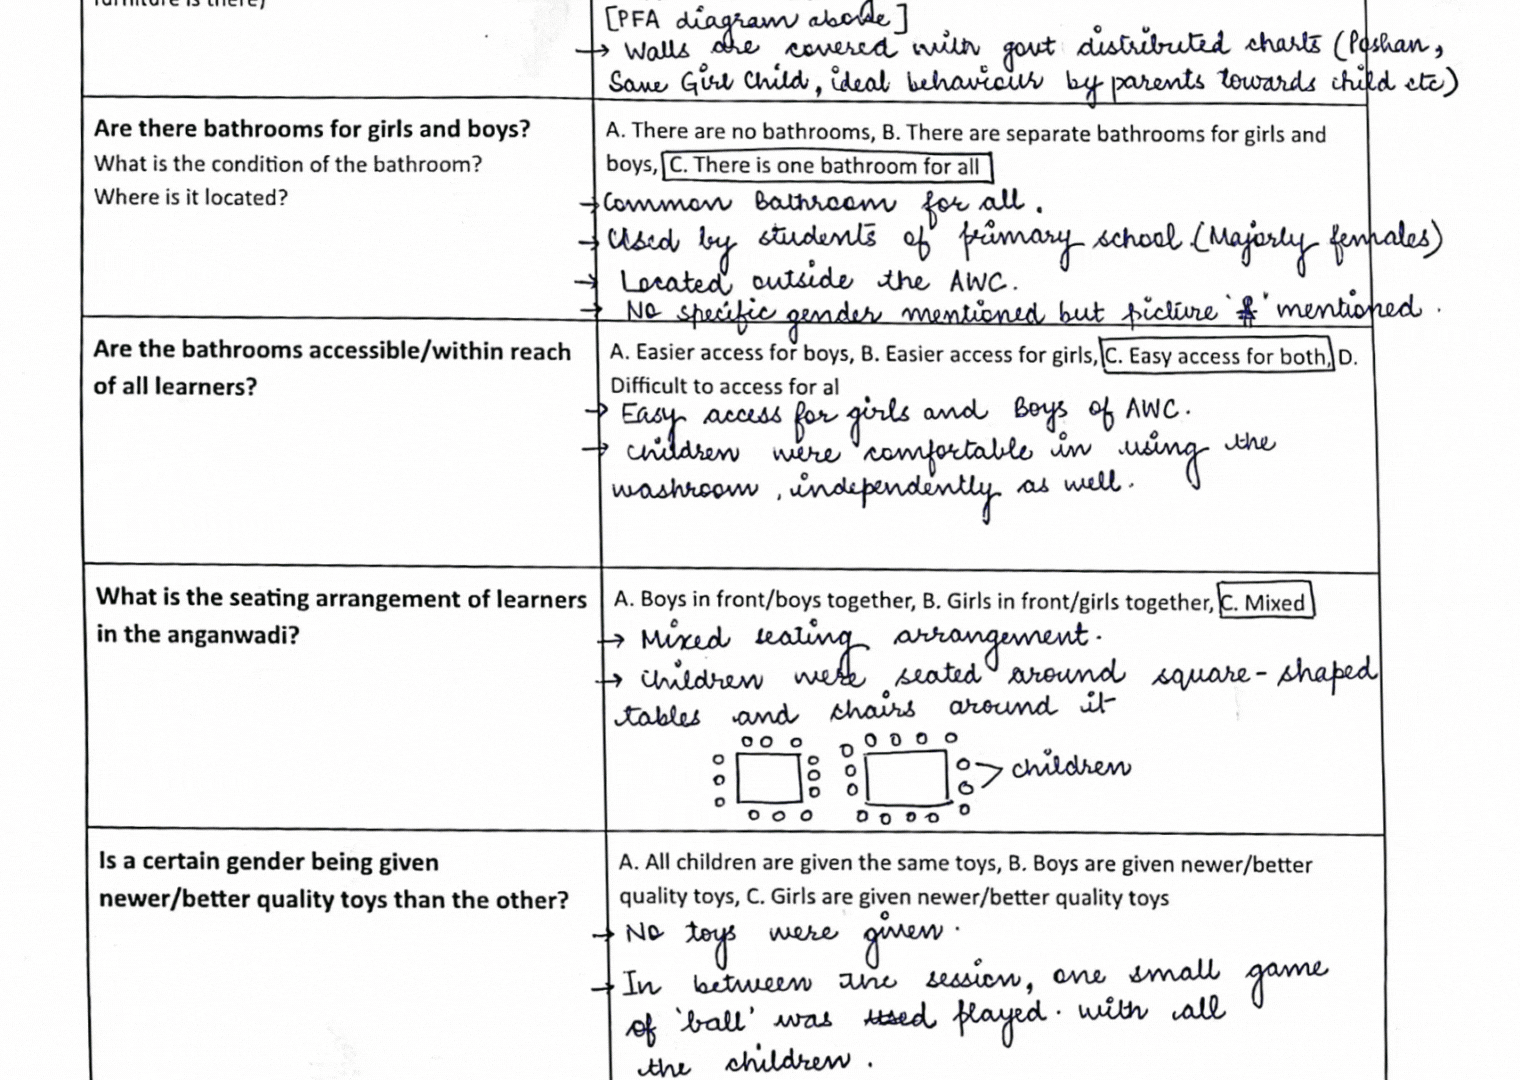 furniture is there)
[PFA diagram above]
→ Walls are covered with govt distributed charts (Poshan,
Save Girl Child, ideal behaviour by parents towards child etc)
Are there bathrooms for girls and boys?
What is the condition of the bathroom?
Where is it located?
A. There are no bathrooms, B. There are separate bathrooms for girls and
boys, C. There is one bathroom for all
→ Common Bathroom for all.
→ Used by students of primary school. (Majorly females)
→ Located outside the AWC.
→ No specific gender mentioned but picture ' ' mentioned.
Are the bathrooms accessible/within reach
of all learners?
A. Easier access for boys, B. Easier access for girls, C. Easy access for both, D.
Difficult to access for al
→ Easy access for girls and Boys of AWC.
→ children were comfortable in using the
washroom, independently as well.
What is the seating arrangement of learners
in the anganwadi?
A. Boys in front/boys together, B. Girls in front/girls together, C. Mixed
→ Mixed seating arrangement.
→ children were seated around square-shaped
tables and chairs around it
children
Is a certain gender being given
newer/better quality toys than the other?
A. All children are given the same toys, B. Boys are given newer/better
quality toys, C. Girls are given newer/better quality toys
→ No toys were given.
→ In between the session, one small game
of 'ball' was used played. with all
the children.